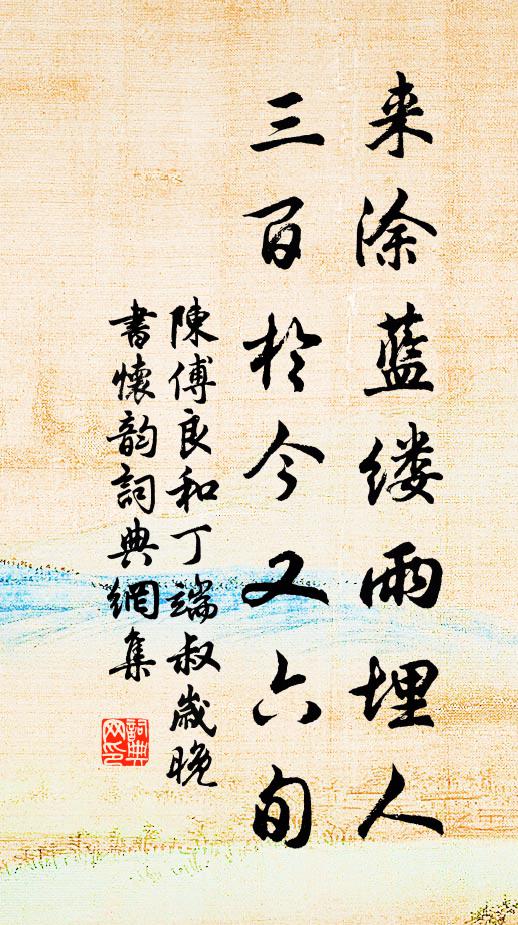 来涂蓝缕雨埋人
三百於今又六旬
陳傅良和丁端叔歲晚
書懷韵詞典網集
詞典网印